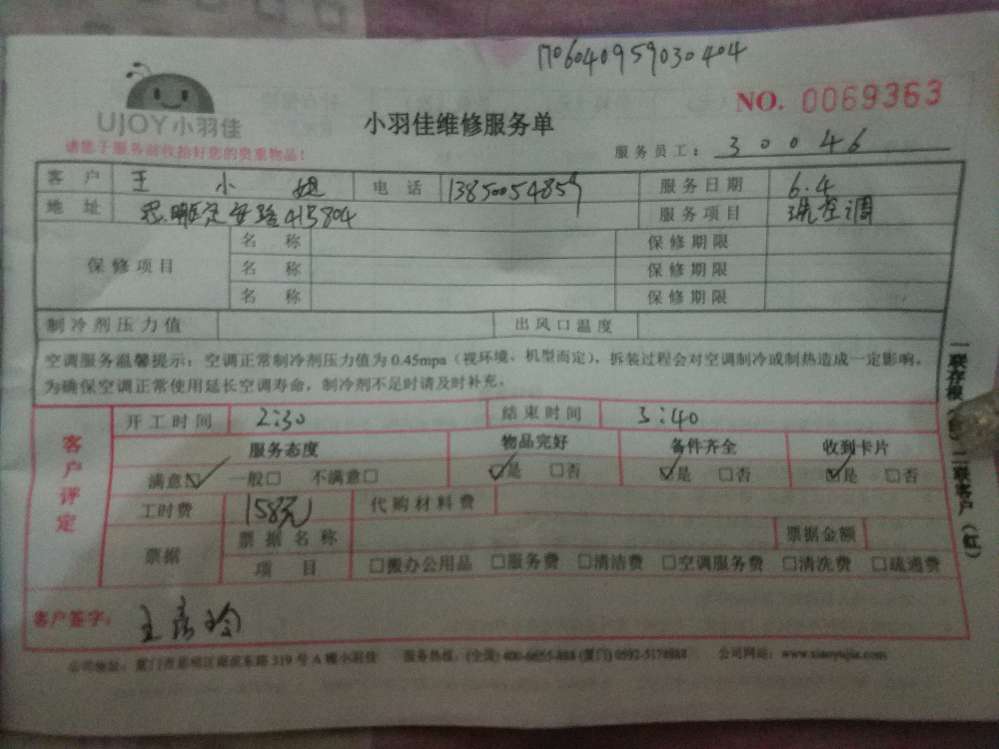 1706040959030404
NO. 0069363
UJOY小羽佳
小羽佳维修服务单
请您于服务前收拾好您的贵重物品!
服务员工: 30046
客户 王小姐 电话 13850054859 服务日期 6.4
地址 思明区定安路41号804 服务项目 洗空调
保修项目 名称 保修期限
名称 保修期限
名称 保修期限
制冷剂压力值 出风口温度
空调服务温馨提示:空调正常制冷剂压力值为0.45mpa(视环境、机型而定),拆装过程会对空调制冷或制热造成一定影响。
为确保空调正常使用延长空调寿命,制冷剂不足时请及时补充。
客户评定
开工时间 2:30 结束时间 3:40
服务态度 物品完好 备件齐全 收到卡片
满意☑ 一般□ 不满意□ ☑是 □否 ☑是 □否 ☑是 □否
工时费 158元 代购材料费
票据 票据名称 票据金额
项目 □搬办公用品 □服务费 □清洁费 □空调服务费 □清洗费 □疏通费
客户签字: 王彦玲
公司地址:厦门市思明区湖滨东路319号A幢小羽佳 服务热线:(全国) (厦门) 公司网站:www.xiaoyujia.com
一联存根 二联客户(红)